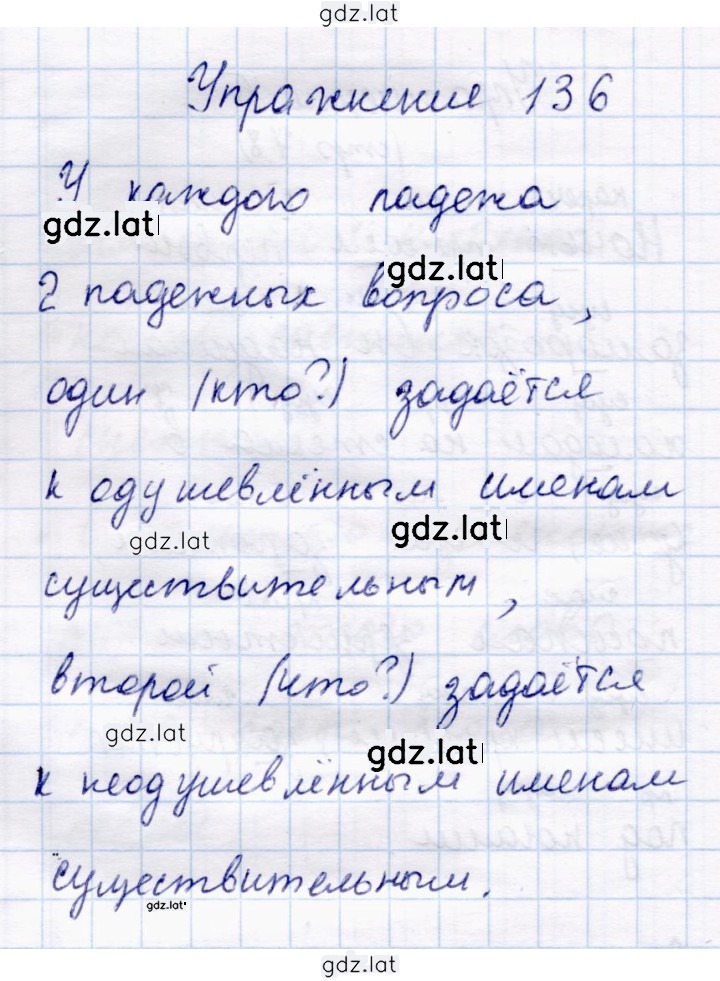 gdz.lat
Упражнение 136
У каждого падежа
gdz.lat
gdz.lat
2 падежных вопроса,
один (кто?) задаётся
к одушевлённым именам
gdz.lat
gdz.lat
существительным,
второй (что?) задаётся
gdz.lat
gdz.lat
к неодушевлённым именам
существительным.
gdz.lat
gdz.lat